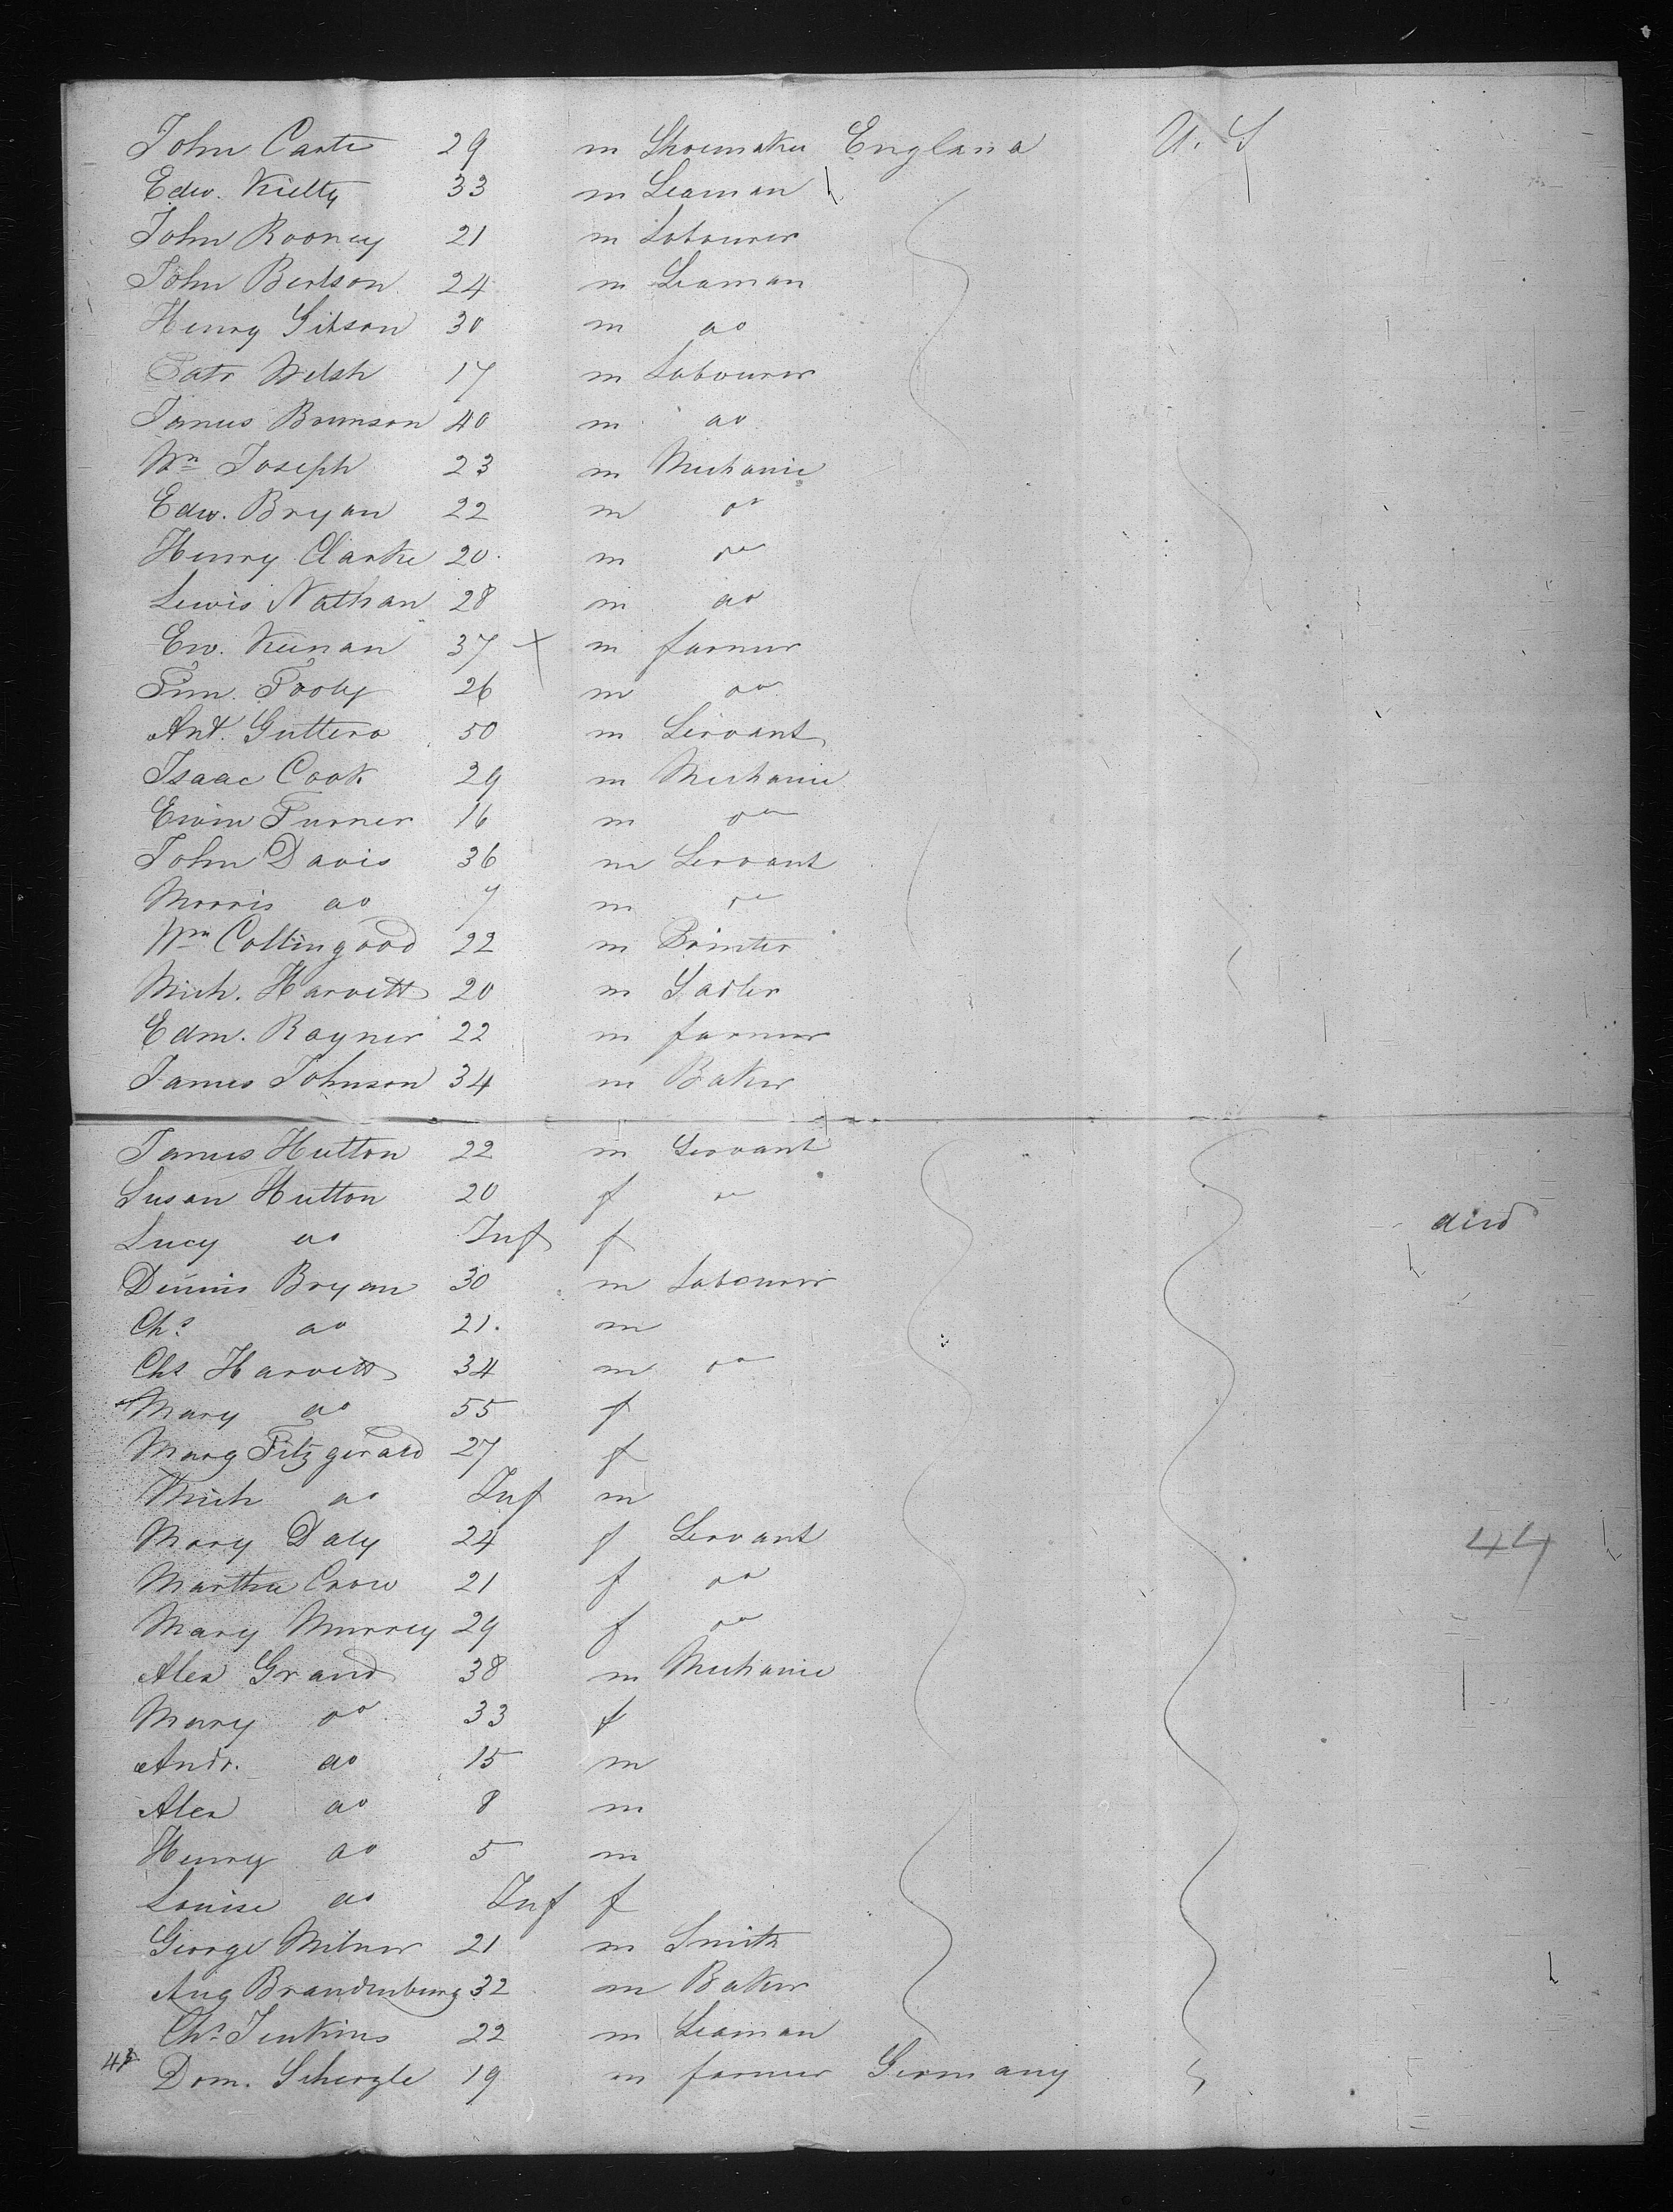 John Carte 29 m Shoemaker England U. S
Edw. Kielty 33 m Seaman
John Rooney 21 m Labourer
John Bertson 24 m Seaman
Henry Gibson 30 m do
Patr Welsh 17 m Labourer
James Brunson 40 m do
Wm Joseph 23 m Mechanic
Edw. Bryan 22 m do
Henry Clarke 20 m do
Lewis Nathan 28 m do
Ew. Keenan 37 x m farmer
Tim. Tooly 26 m do
Ant. Guttero 50 m Servant
Isaac Cook 29 m Mechanic
Erwin Turner 16 m do
John Davis 36 m Servant
Morris do 7 m do
Wm Collingood 22 m Printer
Mich. Harvett 20 m Sadler
Edm. Rayner 22 m farmer
James Johnson 34 m Baker
James Hutton 22 m Servant
Susan Hutton 20 f do
Lucy do Inf f died
Dennis Bryan 30 m Labourer
Chs do 21. m
Chs Harvett 34 m do
Mary do 55 f
Marg Fitzgerald 27 f
Mich do Inf m
Mary Daly 24 f Servant 44
Martha Crow 21 f do
Mary Murrey 29 f do
Alex Grand 38 m Mechanic
Mary do 33 f
Andr. do 15 m
Alex do 8 m
Henry do 5 m
Louise do Inf f
George Milner 21 m Smith
Aug Brandenburg 32 m Baker
Chs Jenkins 22 m Seaman
Dom. Scherzle 19 m farmer Germany